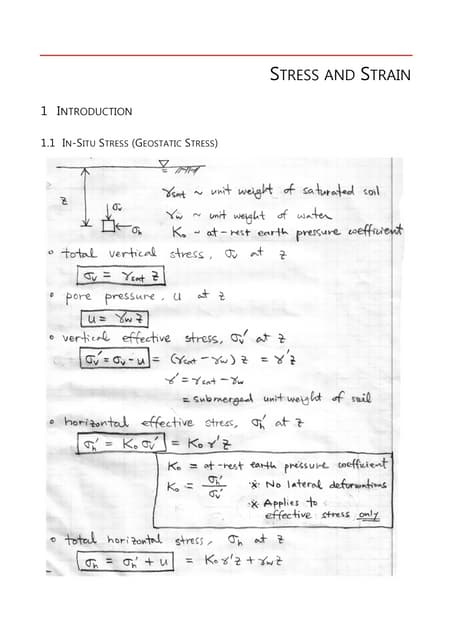 STRESS AND STRAIN
1 INTRODUCTION
1.1 IN-SITU STRESS (GEOSTATIC STRESS)
z
σv
σh
γsat ~ unit weight of saturated soil
γw ~ unit weight of water
K₀ ~ at-rest earth pressure coefficient
○ total vertical stress, σv at z
σv = γsat z
○ pore pressure, u at z
u = γw z
○ vertical effective stress, σv' at z
σv' = σv - u = (γsat - γw) z = γ'z
γ' = γsat - γw
= submerged unit weight of soil
○ horizontal effective stress, σh' at z
σh' = K₀ σv' = K₀ γ'z
K₀ = at-rest earth pressure coefficient
K₀ = σh' / σv' ※ No lateral deformations
※ Applies to
effective stress only
○ total horizontal stress, σh at z
σh = σh' + u = K₀ γ'z + γw z